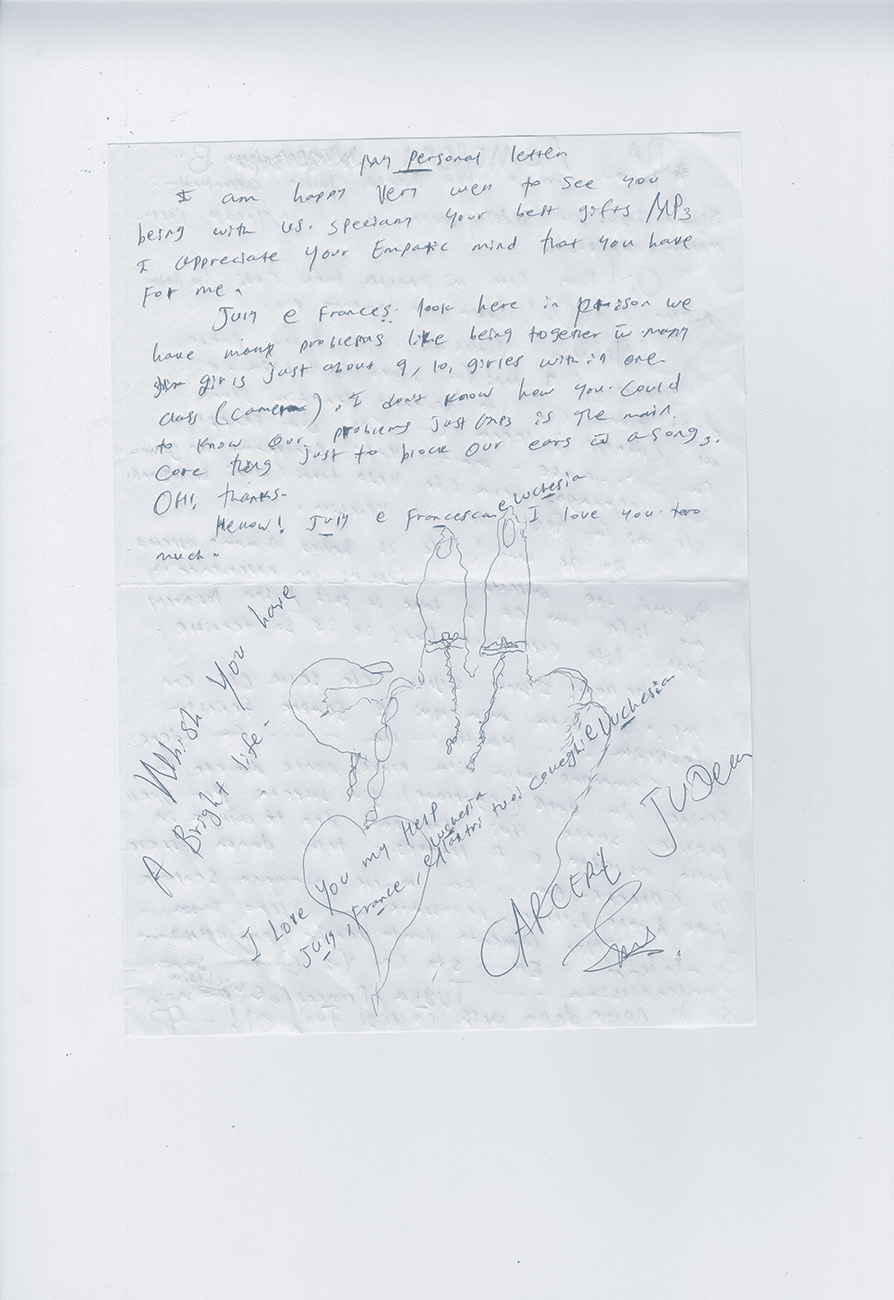 my personal letter
I am happy Very well to see you
being with us. specialy your best gifts MP3
I appreciate your Empatic mind that you have
For me.
July e Frances. look here in prison we
have many problems like being together in many
girls just about 9, 10, girles with in one
class (camera). I don't know how you could
to know our problems just this is the main
Core thing just to block our ears in a song.
OH! thanks.
Hellow! July e Francescan e Luchesia I love you too
much.
Whish You have
A Bright life.
I Love You my Help
July, France, e Luchesia
e altri tuoi coneghi e Luchesia
CARCERY JUDem